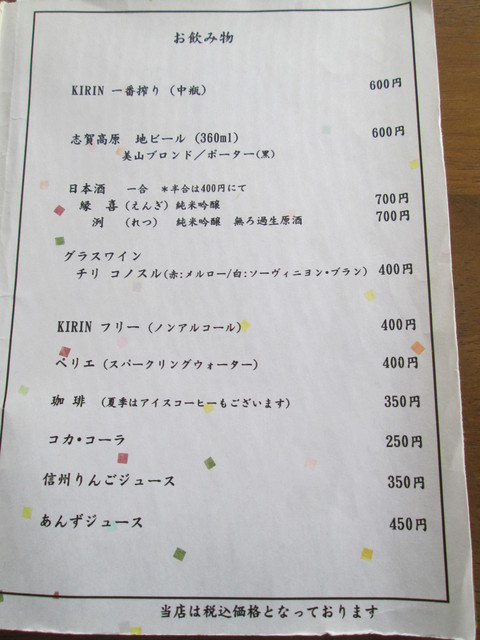 お飲み物
KIRIN 一番搾り (中瓶) 600円
志賀高原 地ビール (360ml) 600円
美山ブロンド／ポーター(黒)
日本酒 一合 ＊半合は400円にて
縁 喜 (えんぎ) 純米吟醸 700円
洌 (れつ) 純米吟醸 無ろ過生原酒 700円
グラスワイン
チリ コノスル(赤:メルロー/白:ソーヴィニヨン・ブラン) 400円
KIRIN フリー (ノンアルコール) 400円
ペリエ (スパークリングウォーター) 400円
珈 琲 (夏季はアイスコーヒーもございます) 350円
コカ・コーラ 250円
信州りんごジュース 350円
あんずジュース 450円
当店は税込価格となっております